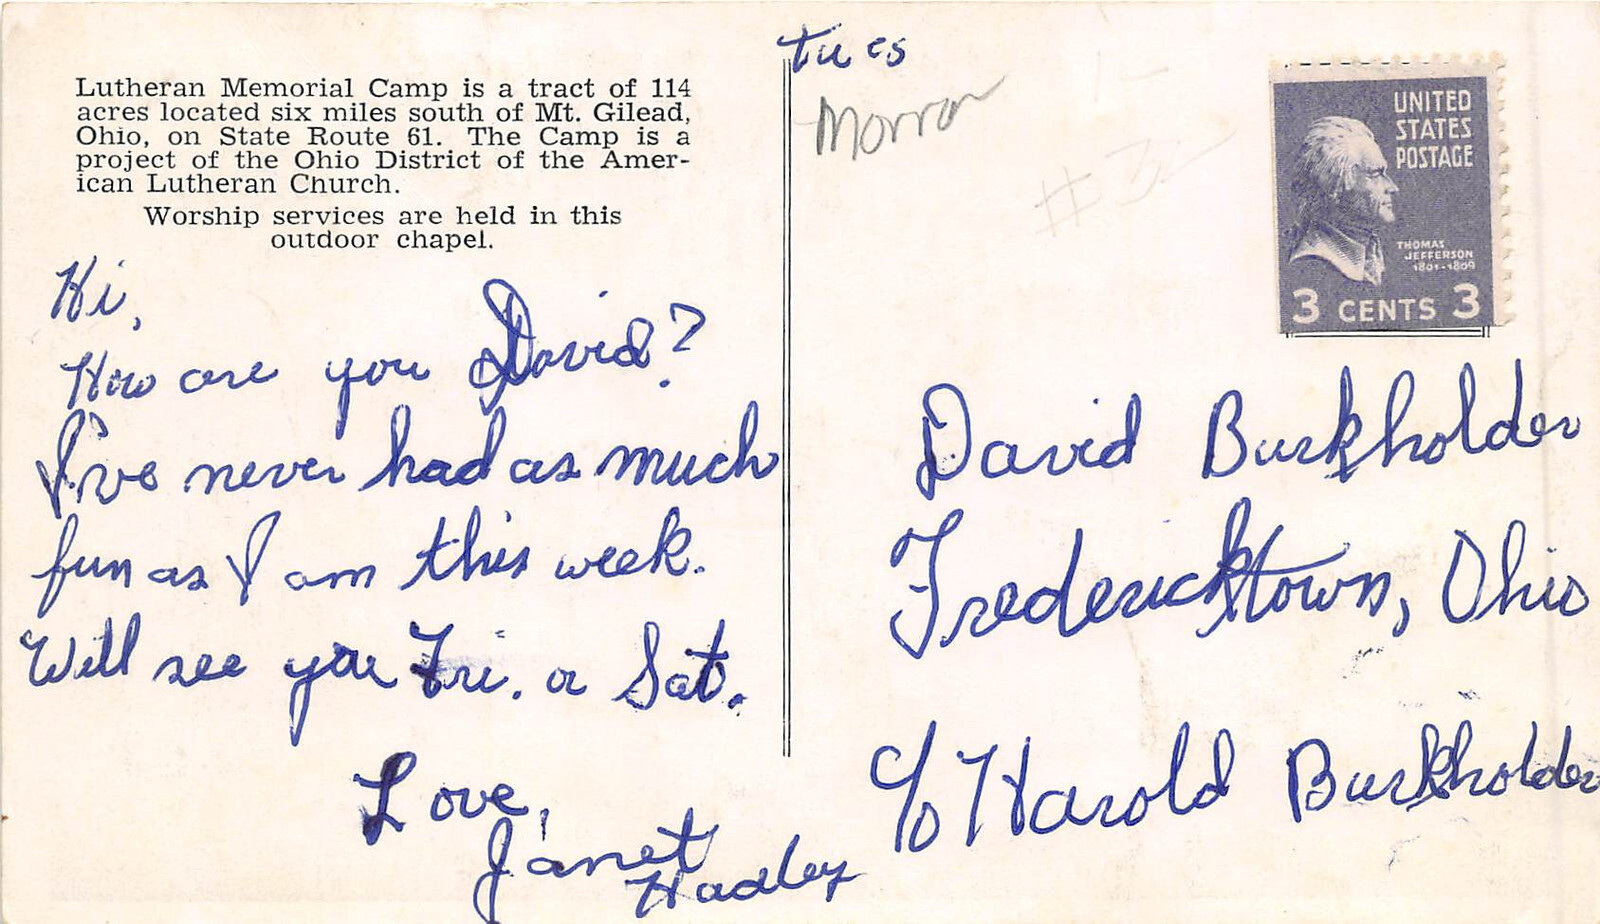 Lutheran Memorial Camp is a tract of 114
acres located six miles south of Mt. Gilead,
Ohio, on State Route 61. The Camp is a
project of the Ohio District of the Amer-
ican Lutheran Church.
Worship services are held in this
outdoor chapel.
Hi,
How are you David?
I've never had as much
fun as I am this week.
Will see you Fri. or Sat.
Love,
Janet
Hadley
tues
Morrow
#3
UNITED
STATES
POSTAGE
THOMAS
JEFFERSON
1801-1809
3 CENTS 3
David Burkholder
Fredericktown, Ohio
c/o Harold Burkholder